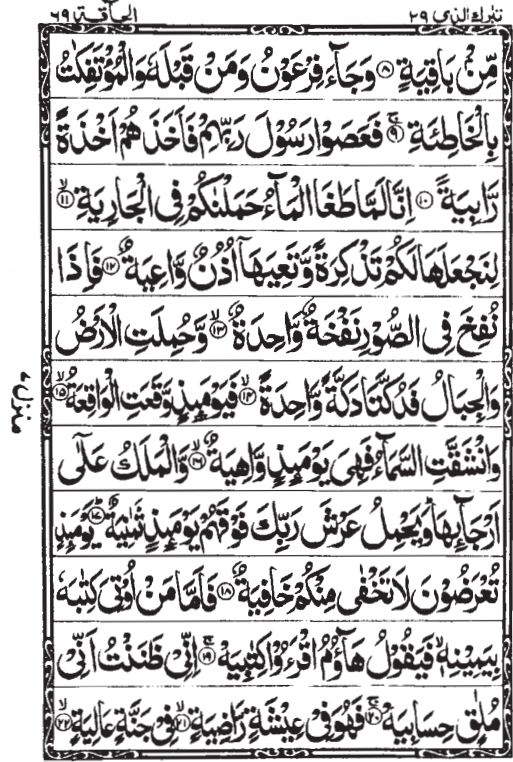 تبرك الذي ٢٩
الحآقة ٦٩
مِّنْۢ بَاقِيَةٍ ۸ وَجَآءَ فِرْعَوْنُ وَمَنْ قَبْلَهٗ وَالْمُؤْتَفِكٰتُ
بِالْخَاطِئَةِ ۹ۚ فَعَصَوْا رَسُوْلَ رَبِّهِمْ فَاَخَذَهُمْ اَخْذَةً
رَّابِيَةً ۱۰ اِنَّا لَمَّا طَغَا الْمَآءُ حَمَلْنٰكُمْ فِى الْجَارِيَةِ ۱۱ۙ
لِنَجْعَلَهَا لَكُمْ تَذْكِرَةً وَّتَعِيَهَآ اُذُنٌ وَّاعِيَةٌ ۱۲ فَاِذَا
نُفِخَ فِى الصُّوْرِ نَفْخَةٌ وَّاحِدَةٌ ۱۳ۙ وَّحُمِلَتِ الْاَرْضُ
وَالْجِبَالُ فَدُكَّتَا دَكَّةً وَّاحِدَةً ۱۴ۙ فَيَوْمَئِذٍ وَّقَعَتِ الْوَاقِعَةُ ۱۵ۙ
وَانْشَقَّتِ السَّمَآءُ فَهِىَ يَوْمَئِذٍ وَّاهِيَةٌ ۱۶ۙ وَّالْمَلَكُ عَلٰٓى
اَرْجَآئِهَا ؕ وَيَحْمِلُ عَرْشَ رَبِّكَ فَوْقَهُمْ يَوْمَئِذٍ ثَمٰنِيَةٌ ۱۷ؕ يَوْمَئِذٍ
تُعْرَضُوْنَ لَا تَخْفٰى مِنْكُمْ خَافِيَةٌ ۱۸ فَاَمَّا مَنْ اُوْتِىَ كِتٰبَهٗ
بِيَمِيْنِهٖ ۙ فَيَقُوْلُ هَآؤُمُ اقْرَءُوْا كِتٰبِيَهْ ۱۹ۚ اِنِّىْ ظَنَنْتُ اَنِّىْ
مُلٰقٍ حِسَابِيَهْ ۲۰ۚ فَهُوَ فِىْ عِيْشَةٍ رَّاضِيَةٍ ۲۱ۙ فِىْ جَنَّةٍ عَالِيَةٍ ۲۲ۙ
منزل ٧